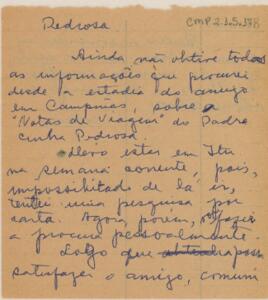 Pedrosa
CMP 2.1.5.178
Ainda não obtive todas
as informações que procurei
desde a estadia do amigo
em Campinas, sobre a
"Notas de Viagem" do Padre
Cunha Pedrosa.
Devo estar em Itu
na semana corrente, pois,
impossibilitado de lá ir,
tentei uma pesquisa por
carta. Agora porém,
a procura pessoalmente.
Logo que possa
satisfazer o amigo, comuni